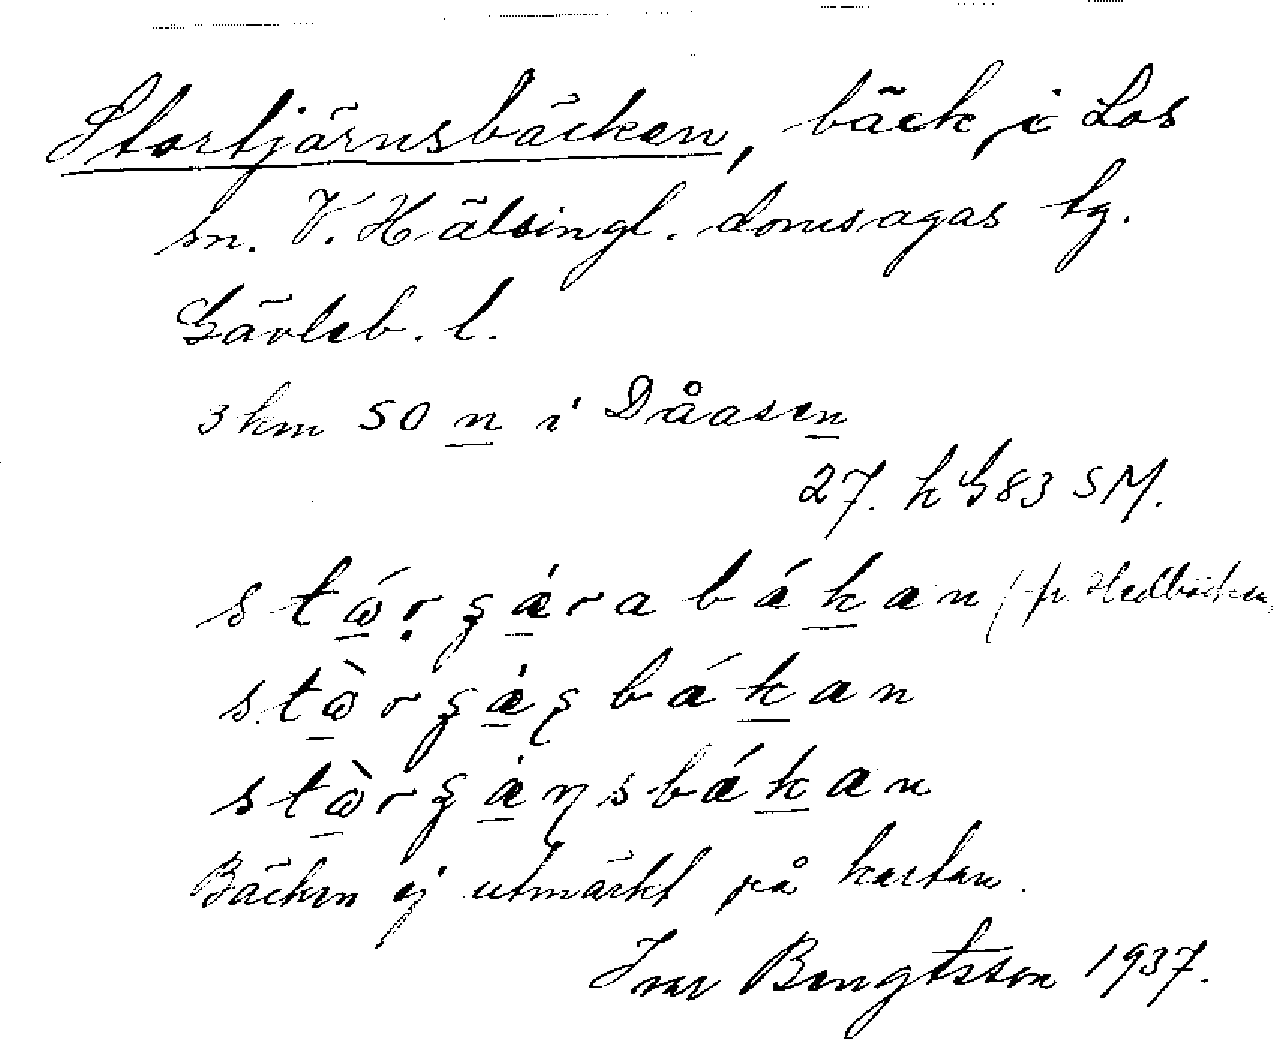 Stortjärnsbäcken, bäck i Los
sn. V. Hälsingl. domsagas tg.
Gävleb. l.
3 km SO n i Dåasen
27. h G83 SM.
bákan
bákan
bákan
Bäcken ej utmärkt på kartan.
Ivar Bengtsson 1937.